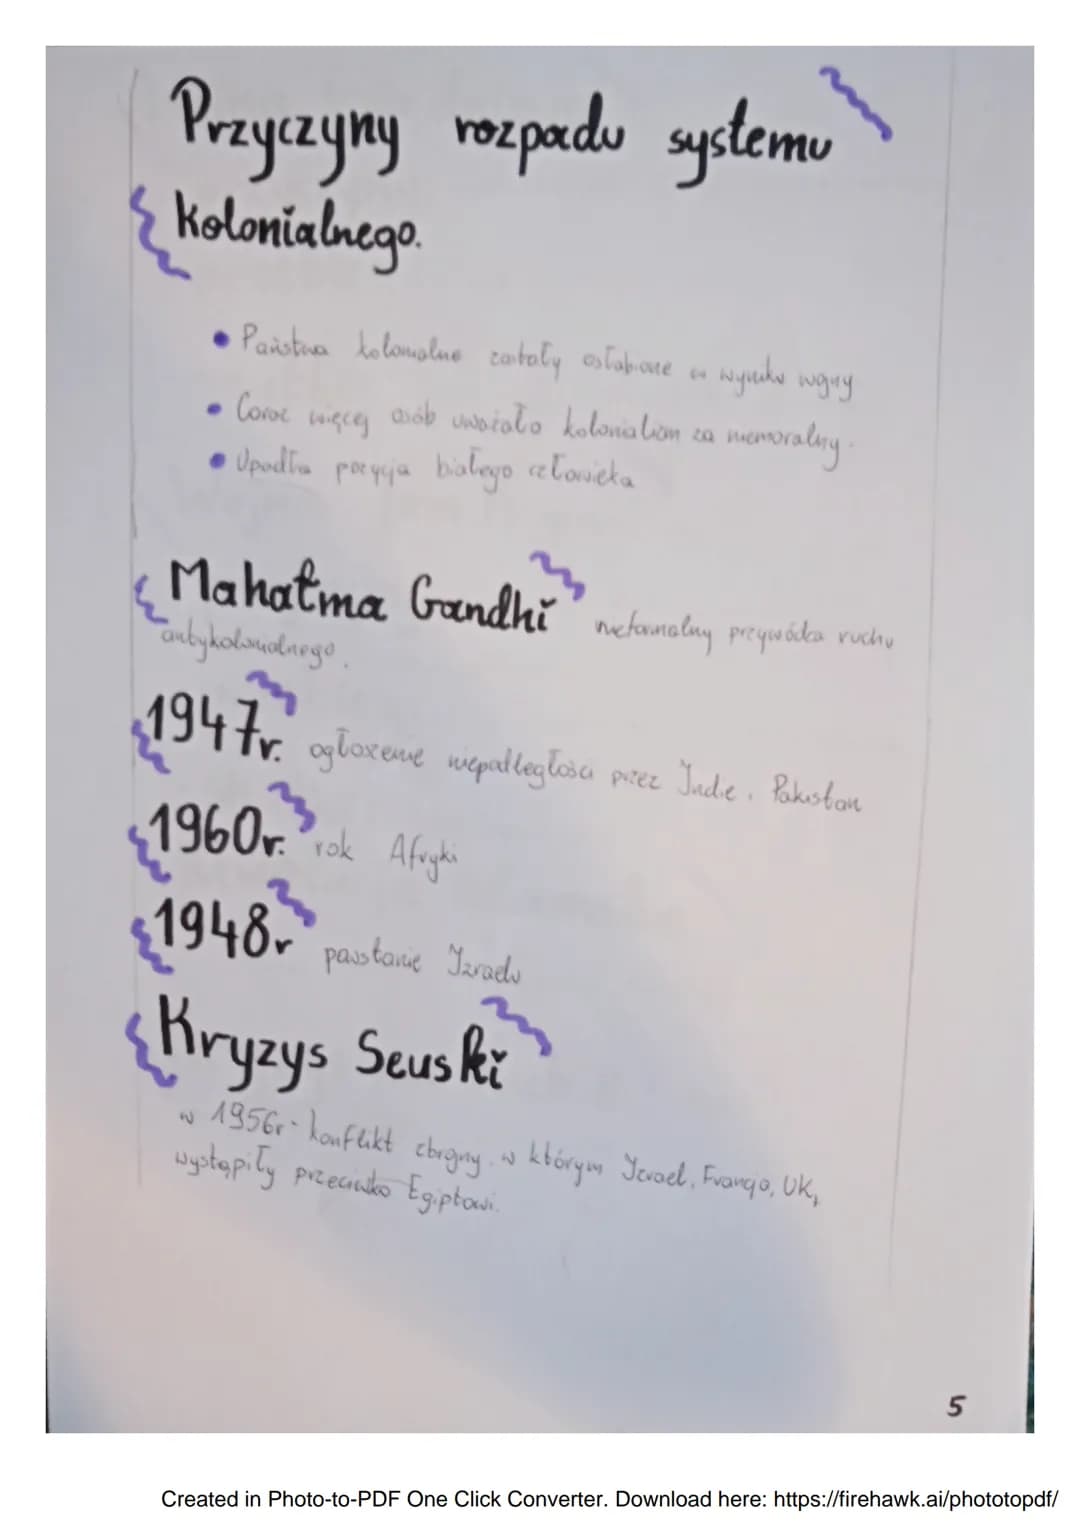 Przyczyny rozpadu systemu
kolonialnego.
• Państwa kolonialne zostały osłabione w wyniku wojny
• Coraz więcej osób uważało kolonializm za niemoralny.
• Upadła pozycja białego człowieka
Mahatma Gandhi nieformalny przywódca ruchu
antykolonialnego.
1947r. ogłoszenie niepodległości przez Indie, Pakistan
1960r. rok Afryki
1948r powstanie Izraelu
Kryzys Seuski
w 1956r - konflikt zbrojny, w którym Izrael, Francja, UK,
wystąpiły przeciwko Egiptowi.
5
Created in Photo-to-PDF One Click Converter. Download here: https://firehawk.ai/phototopdf/